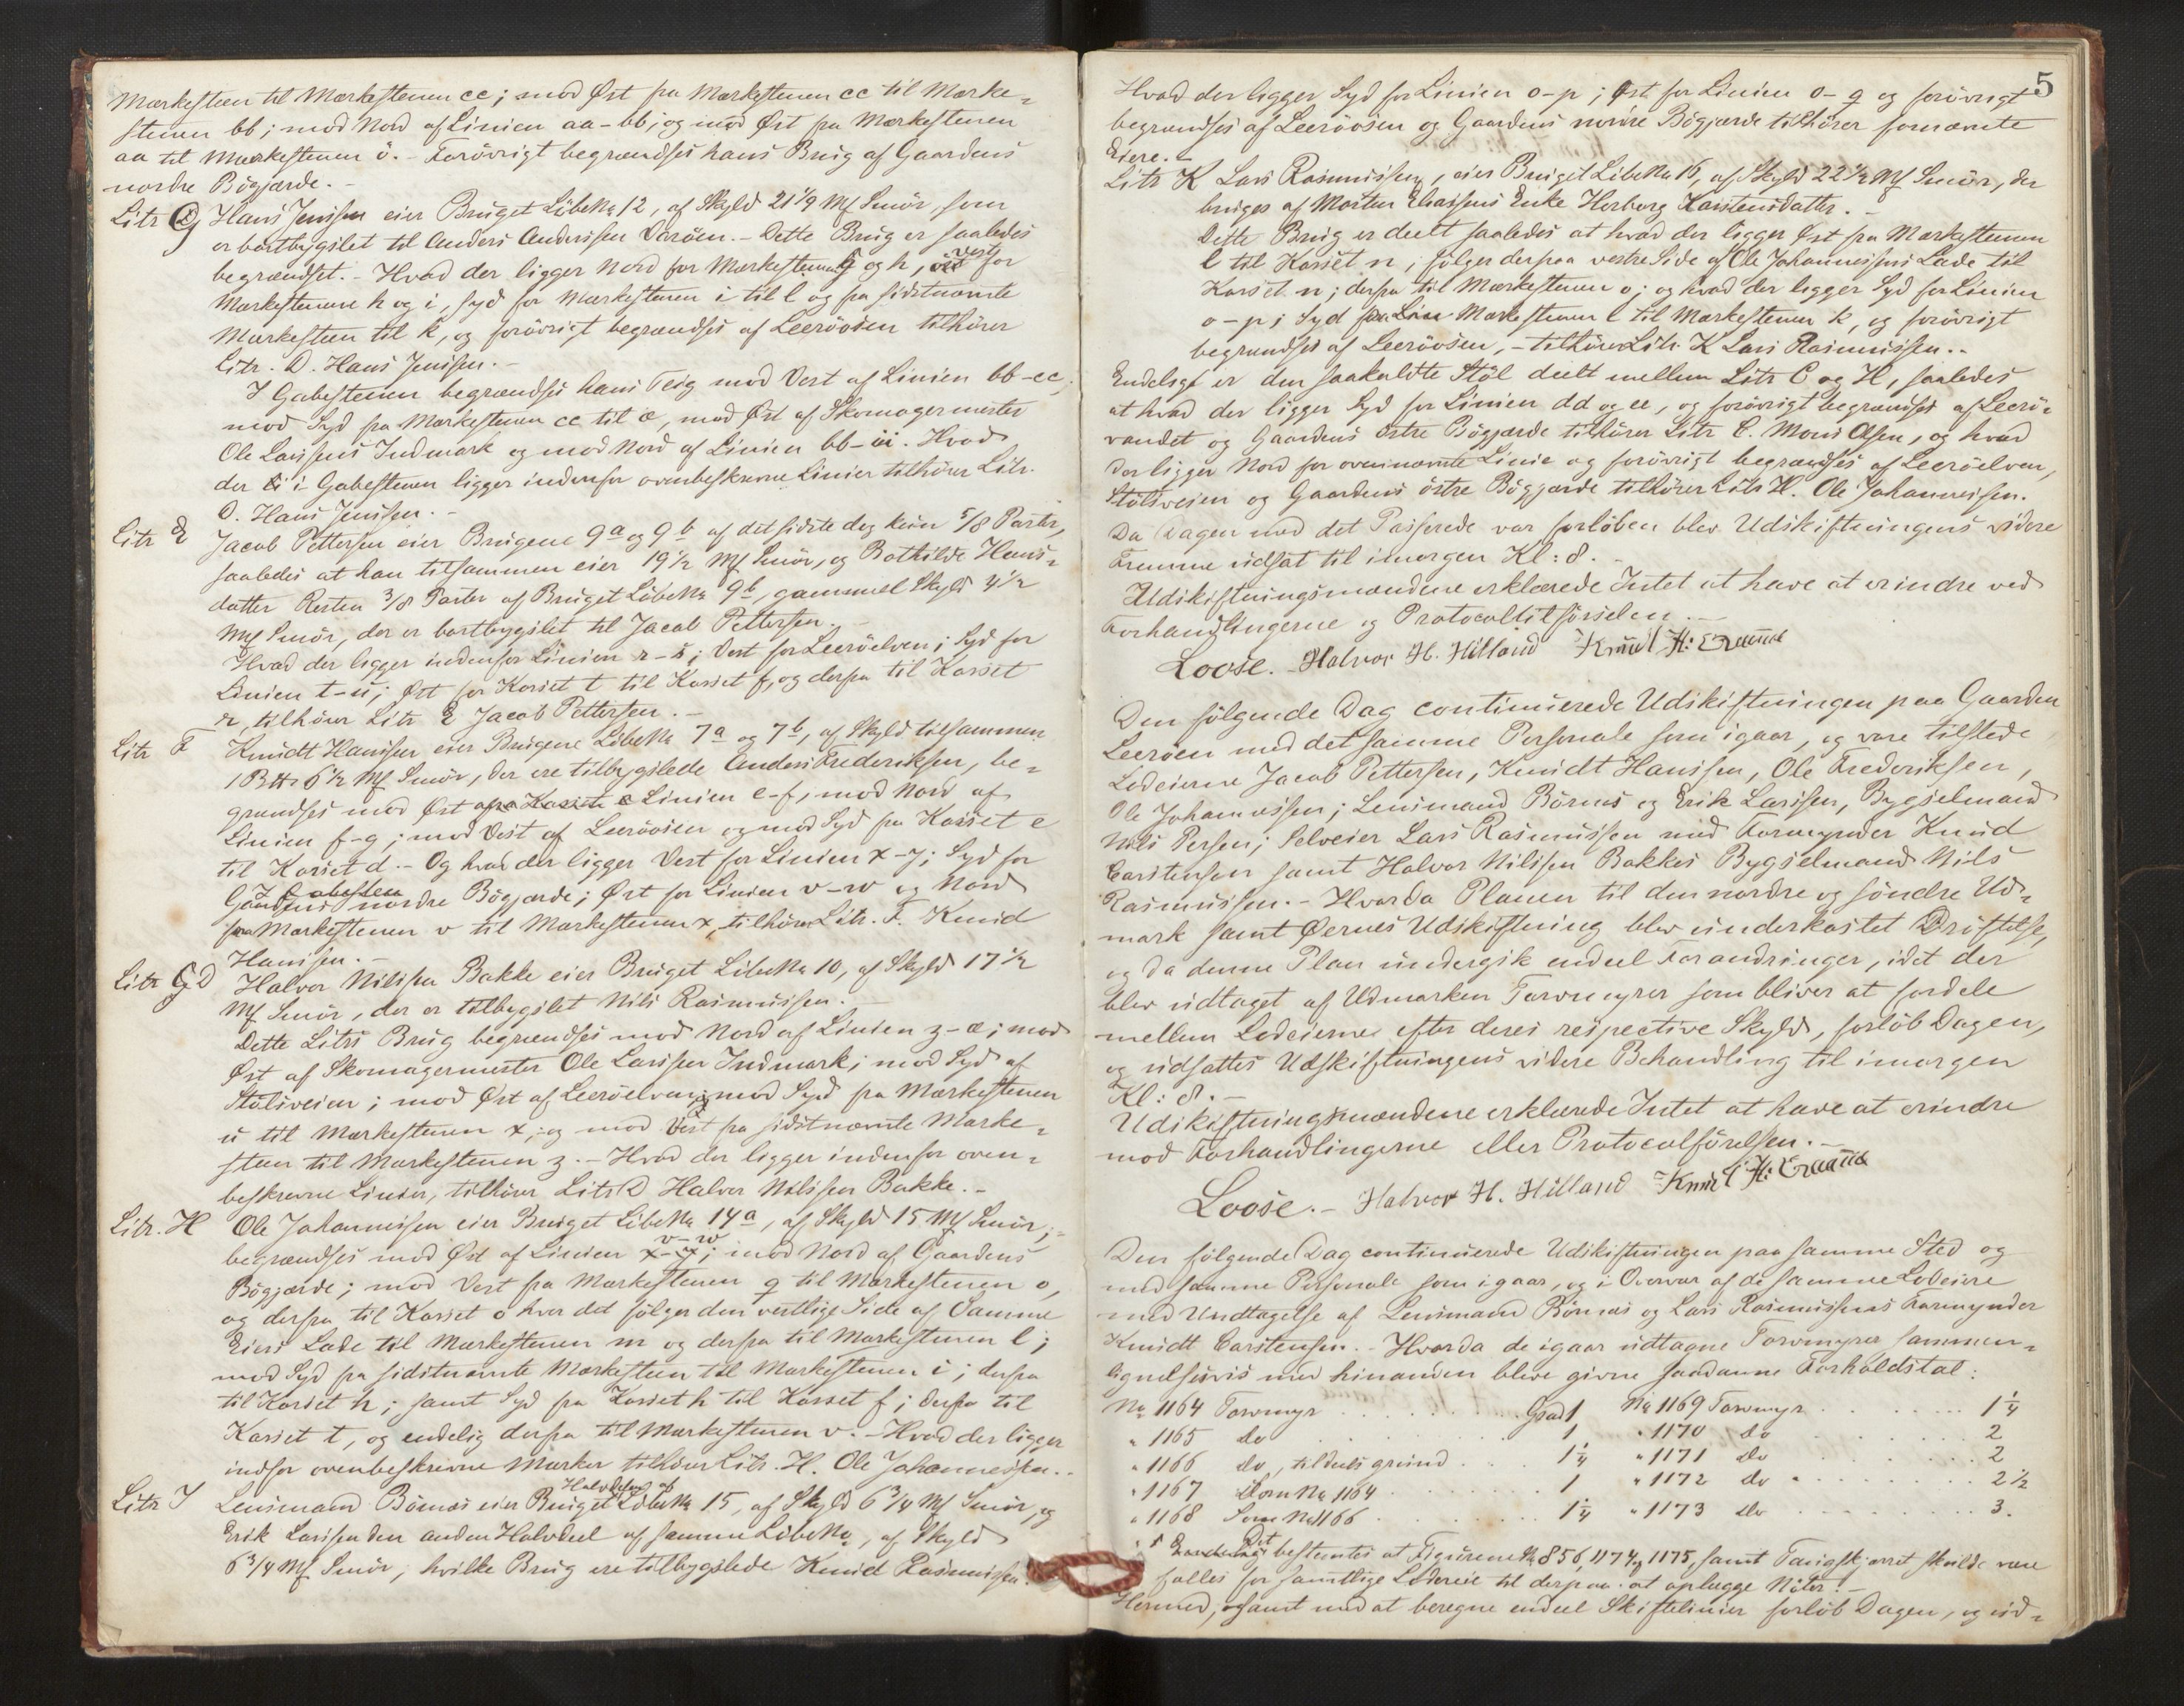 Mærkesteen til Mærkestenen cc; mod Øst fra Mærkestenen cc til Mærke-
stenen bb; mod Nord af Linien aa-bb; og mod Øst fra Mærkestenen
aa til Mærkestenen ö. - Forövrigt begrændses hans Brug af Gaardens
nordre Bögjærde. -
Litr Hans Jenssen eier Bruget Löbe No 12, af Skyld 21 1/9 Mf Smör, som
er bortbygslet til Anders Anderssen Varöen. - Dette Brug er saaledes
begrændset. - Hvad der ligger Nord for Mærkestenen g og h, vest for
Mærkestenene h og i, syd for Mærkestenen i til l og fra sidstnævnte
Mærkesteen til k, og forövrigt begrændses af Leeröosen tilhörer
Litr. D. Hans Jenssen. -
I Gabestenen begrændses hans Teig mod Vest af Linien bb-cc;
mod Syd fra Mærkestenen cc til æ, mod Øst af Skomagermester
Ole Larssens Indmark og mod Nord af Linien bb-ii. Hvad
der i Gabestenen ligger indenfor ovenbeskrevne Linier tilhörer Litr.
D. Hans Jenssen. -
Litr E Jacob Pettersen eier Brugene 9a og 9b af det sidste dog kun 5/8 Parter,
saaledes at han tilsammen eier 19 1/2 Mf Smör, og Bothilde Hans-
datter Resten 3/8 Parter af Bruget Löbe No 9b, gammel Skyld 4 1/2
Mf Smör, der er bortbygslet til Jacob Pettersen. -
Hvad der ligger indenfor Linien r-s; Vest for Leeröelven; Syd for
Linien t-u; Øst for Korset t til Korset f, og derfra til Korset
r, tilhörer Litr E Jacob Pettersen. -
Litr F Knudt Hanssen eier Brugene Löbe No 7a og 7b, af Skyld tilsammen
1 B# 6 1/2 Mf Smör, der ere tilbygslede Anders Frederiksen, be-
grændses mod Øst af Linien e-f, mod Nord af
Linien f-g; mod Vest af Leeröosen og mod Syd fra Korset e
til Korset d. - Og hvad der ligger Vest for Linien x-y; Syd for
Gaardens nordre Bögjærde; Øst for Linien v-w og Nord
fra Mærkestenen v til Mærkestenen x, tilhörer Litr. F. Knud
Hanssen. -
Litr G Halvor Nilssen Bakke eier Bruget Löbe No 10, af Skyld 17 1/2
Mf Smör, der er tilbygslet Nils Rasmussen. -
Dette Litrs Brug begrændses mod Nord af Linien z-æ; mod
Øst af Skomagermester Ole Larssen Indmark; mod Syd af
Stölsveien; mod Øst af Leeröelven; mod Syd fra Mærkestenen
u til Mærkestenen x; og mod Vest fra sidstnævnte Mærke-
steen til Mærkestenen z. - Hvad der ligger indenfor oven-
beskrevne Linier, tilhörer Litr Halvor Nilssen Bakke. -
Litr. H Ole Johannessen eier Bruget Löbe No 14a, af Skyld 15 Mf Smör;
begrændses mod Øst af Linien v-w; mod Nord af Gaardens
Bögjærde; mod Vest fra Mærkestenen q til Mærkestenen o,
og derfra til Korset o hvor det fölger den vestlige Side af Samme
Eiers Lade til Mærkestenen m og derfra til Mærkestenen l;
mod Syd fra sidstnævnte Mærkesteen til Mærkestenen i; derfra
til Korset h; samt Syd fra Korset h til Korset f; derfra til
Korset t, og endelig derfra til Mærkestenen v. - Hvad der ligger
indfor ovenbeskrevne Mærker tilhörer Litr. H. Ole Johannessen. -
Litr I Lensmand Börnæs eier Halvdelen af Bruget Löbe No 15, af Skyld 6 3/4 Mf Smör, og
Erik Larssen den anden Halvdeel af samme Löbe No, af Skyld
6 3/4 Mf Smör, hvilke Brug ere tilbygslede Knud Rasmussen.
5
Hvad der ligger Syd for Linien o-p; Øst for Linien o-q og forövrigt
begrændses af Leeröosen og Gaardens nordre Bögjærde tilhörer fornævnte
Eiere. -
Litr K Lars Rasmussen, eier Bruget Löbe No 16, af Skyld 22 1/2 Mf Smör, der
bruges af Morten Eliassens Enke Herborg Karstensdatter. -
Dette Brug er deelt saaledes at hvad der ligger Øst fra Mærkestenen
l til Korset n, fölger derpaa vestre Side af Ole Johannessens Lade til
Korset n; derfra til Mærkestenen o; og hvad der ligger Syd for Linien
o-p; Syd fra Mærkestenen l til Mærkestenen k, og forövrigt
begrændses af Leeröosen, - tilhörer Litr. K Lars Rasmussen. -
Endeligt er den saakaldte Stöl deelt mellem Litr C og H, saaledes
at hvad der ligger Syd for Linien dd og ee, og forövrigt begrændses af Leerö-
vandet og Gaardens östre Bögjærde tilhörer Litr C. Mons Olsen, og hvad
der ligger Nord for ovennævnte Linie og forövrigt begrændses af Leeröelven,
Stölsveien og Gaardens östre Bögjærde tilhörer Litr H. Ole Johannessen.
Da Dagen med det Passerede var forlöben blev Udskiftningens videre
Fremme udsat til imorgen Kl: 8. -
Udskiftningsmændene erklærede Intet at have at erindre ved
Forhandlingerne og Protocoltilförselen. -
Loose. - Halvor H. Hilland Knud H:
Den fölgende Dag continuerede Udskiftningen paa Gaarden
Leeröen med det samme Personale som igaar, og vare tilstede
Lodeierne Jacob Pettersen, Knudt Hanssen, Ole Frederiksen,
Ole Johannessen; Lensmand Börnæs og Erik Larssen, Bygselmand
Nils Persen; Selveier Lars Rasmussen med Formynder Knud
Carstensen samt Halvor Nilssen Bakkes Bygselmand Nils
Rasmussen. - Hvorda Planen til den nordre og söndre Ud-
mark samt Øernes Udskiftning blev underkastet Dröftelse,
og da denne Plan undergik endeel Forandringer, idet der
blev udtaget af Udmarken Torvmyrer som bliver at fordele
mellem Lodeierne efter deres respective Skyld, forlöb Dagen,
og udsattes Udskiftningens videre Behandling til imorgen
Kl: 8. -
Udskiftningsmændene erklærede Intet at have at erindre
mod Forhandlingerne eller Protocolförelsen. -
Loose. - Halvor H. Hilland Knud H:
Den fölgende Dag continuerede Udskiftningen paa samme Sted og
med samme Personale som igaar, og i Overvær af de samme Lodeiere
med Undtagelse af Lensmand Börnæs og Lars Rasmussens Formynder
Knudt Carstensen. - Hvorda de igaar udtagne Torvmyrer sammen-
lignelsesvis med hinanden bleve givne saadanne Forholdstal:
No 1164 Torvmyr Grad 1 No 1169 Torvmyr 1 1/4
" 1165 do 1 " 1170 do 2
" 1166 do, tildeels grund 1 1/4 " 1171 do 2
" 1167 Som No 1164 1 " 1172 do 2 1/2
" 1168 Som No 1166 1 1/4 " 1173 do 3.
Det bestemtes at Figurene No 856, 1174 og 1175, samt Tangskjæret skulde være
fælles for samtlige Lodeiere til derpaa at oplægge Nöter. -
Hermed, samt med at beregne endeel Skiftelinier forlöb Dagen, og ud-